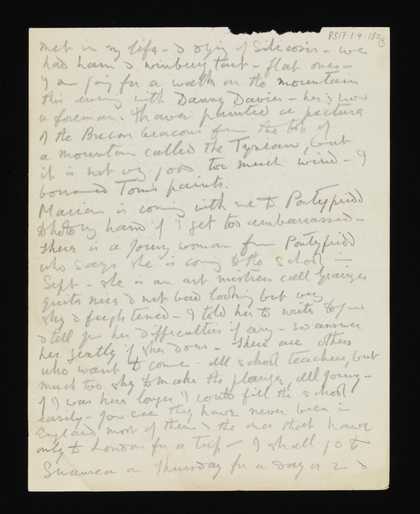 met in my life - & dying of Silicosis - we
had ham & winberry tart - flat ones -
I am going for a walk on the mountain
this evening with Danny Davies - he is now
a foreman. I have painted a picture
of the Brecon beacons from the top of
a mountain called the but
it is not very good too much wind - I
borrowed Toms paints.
Marian is coming with me to Pontypridd
to hold my hand if I get too embarrassed -
There is a young woman from Pontypridd
who says she is coming to the school in
Sept - she is an art mistress call
quite nice & not bad looking but very
shy & frightened - I told her to write to you
& tell you her difficulties if any - so answer
her gently if she does - There are others
who want to come - all school teachers, but
much too shy to make the plunge, all young -
if I was here longer I could fill the school
easily - you see they have never been in
England most of them & the ones that have
only to London for a trip - I shall go to
Swansea on Thursday for a day or 2 &